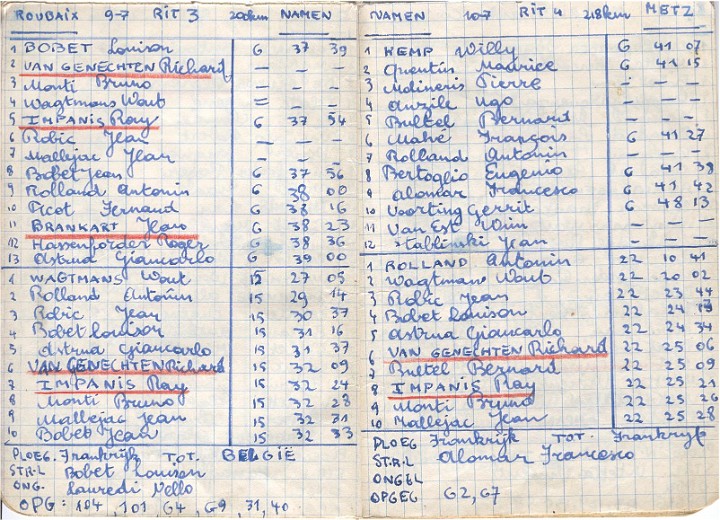 ROUBAIX 9-7 RIT 3 200km NAMEN
1 BOBET Louison 6 37 39
2 VAN GENECHTEN Richard — — —
3 Monti Bruno — — —
4 Wagtmans Wout = — —
5 IMPANIS Ray 6 37 54
6 Robic Jean — — —
7 Mallejac Jean — — —
8 Bobet Jean 6 37 56
9 Rolland Antonin 6 38 00
10 Picot Fernand 6 38 16
11 BRANKART Jean 6 38 23
12 Hassenforder Roger 6 38 36
13 Astrua Giancarlo 6 39 00
1 WAGTMANS Wout 15 27 05
2 Rolland Antonin 15 29 14
3 Robic Jean 15 30 37
4 Bobet Louison 15 31 16
5 Astrua Giancarlo 15 31 37
6 VAN GENECHTEN Richard 15 32 09
7 IMPANIS Ray 15 32 24
8 Monti Bruno 15 32 28
9 Mallejac Jean 15 32 31
10 Bobet Jean 15 32 33
PLOEG. Frankrijk TOT. BELGIË
STR.L Bobet Louison
ONG. Lauredi Nello
OPG: 104, 101, 64, 69, 31, 40
NAMEN 10-7 RIT 4 218km METZ
1 KEMP Willy 6 41 07
2 Quentin Maurice 6 41 15
3 Molineris Pierre — — —
4 Anzile Ugo — — —
5 Bultel Bernard — — —
6 Mahé François 6 41 27
7 Rolland Antonin — — —
8 Bertoglio Eugenio 6 41 39
9 Alomar Francesco 6 41 42
10 Voorting Gerrit 6 48 13
11 Van Est Wim — — —
12 Stablinski Jean — — —
1 ROLLAND Antonin 22 10 41
2 Wagtmans Wout 22 20 02
3 Robic Jean 22 23 44
4 Bobet Louison 22 24
5 Astrua Giancarlo 22 24 34
6 VAN GENECHTEN Richard 22 25 06
7 Bultel Bernard 22 25 09
8 IMPANIS Ray 22 25 21
9 Monti Bruno 22 25 26
10 Mallejac Jean 22 25 28
PLOEG Frankrijk TOT. Frankryk
STR.L Alomar Francesco
ONGEL
OPGEG 62, 67